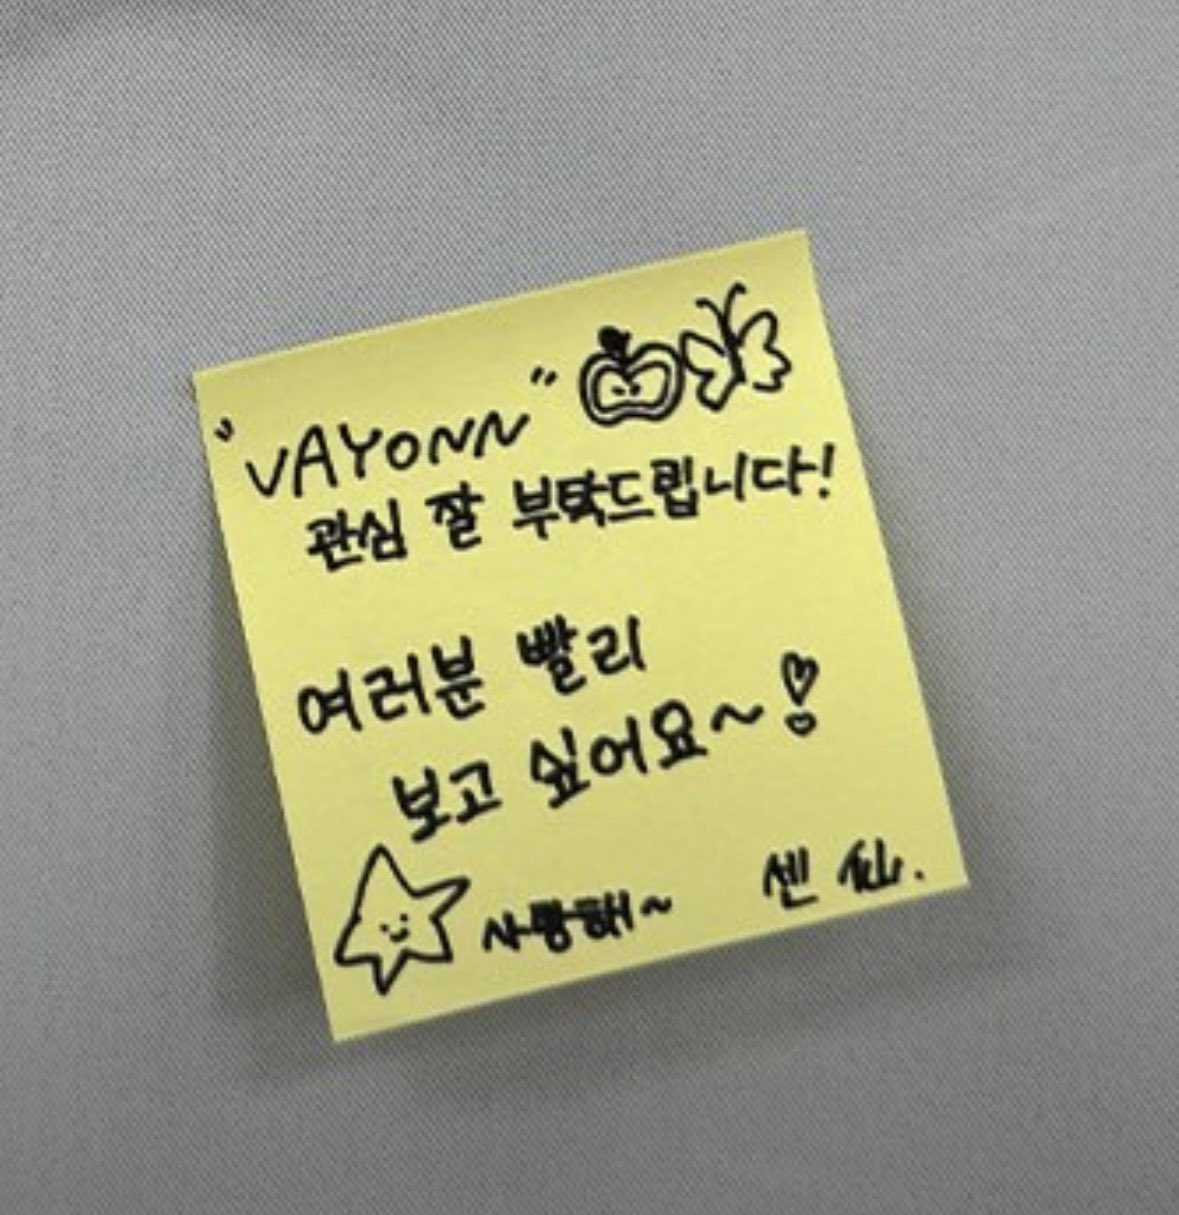 "VAYONN"
관심 잘 부탁드립니다!
여러분 빨리
보고 싶어요~!
사랑해~ 센 仙.